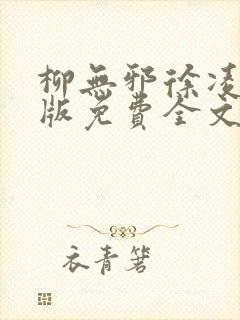 柳無邪徐凌
版免費全文
衣青箬